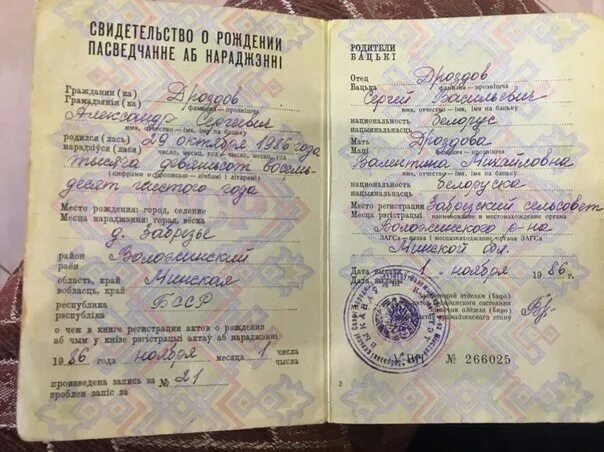 СВИДЕТЕЛЬСТВО О РОЖДЕНИИ
ПАСВЕДЧАННЕ АБ НАРАДЖЭННІ
Гражданин (ка)
Грамадзянін (ка)
Дроздов
фамилия - прозвішча
Александр Сергеевич
имя, отчество - імя, імя па бацьку
родился (лась) 29 октября 1986 года
нарадзіўся (лася) число, месяц, год - чысло, месяц, год
тысяча девятьсот восемь-
(цифрами и прописью - лічбамі і літарамі)
десят шестого года
Место рождения: город, селение
Месца нараджэння: горад, вёска
д. Забрезье
район
раён
Воложинский
область, край
вобласць, край
Минская
республика
рэспубліка
БССР
о чем в книге регистрации актов о рождении
аб чым у кнізе рэгістрацыі актаў аб нараджэнні
1986 года ноября месяца 1 числа
чысла
произведена запись за
зроблен запіс за
№ 21
РОДИТЕЛИ
БАЦЬКІ
Отец
Бацька
Дроздов
фамилия - прозвішча
Сергей Васильевич
имя, отчество - імя, імя па бацьку
национальность
нацыянальнасць
белорус
Мать
Маці
Дроздова
фамилия - прозвішча
Валентина Михайловна
имя, отчество - імя, імя па бацьку
национальность
нацыянальнасць
белоруска
Место регистрации
Месца рэгістрацыі
сельсовет
наименование и местонахождение органа
ЗАГСа - назва і месцазнаходжанне органа ЗАГСа
Воложинского р-на
Минской обл.
Дата выдачи
Дата выдачы
1 ноября 1986 г.
отделом (бюро)
состояния
аддзела (бюро)
грамадзянскага стану
№ 266025
3